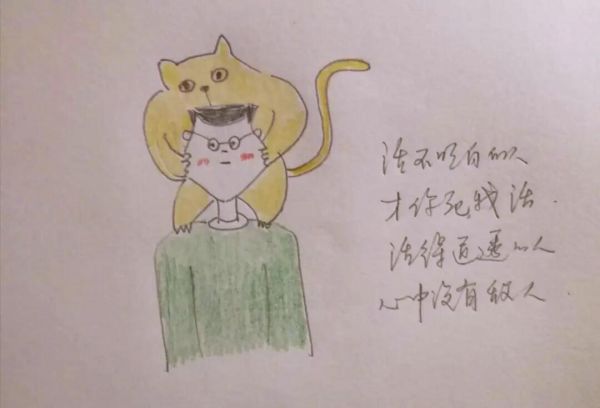 活不明白的人
才你死我活.
活得逍遥的人
心中没有敌人.